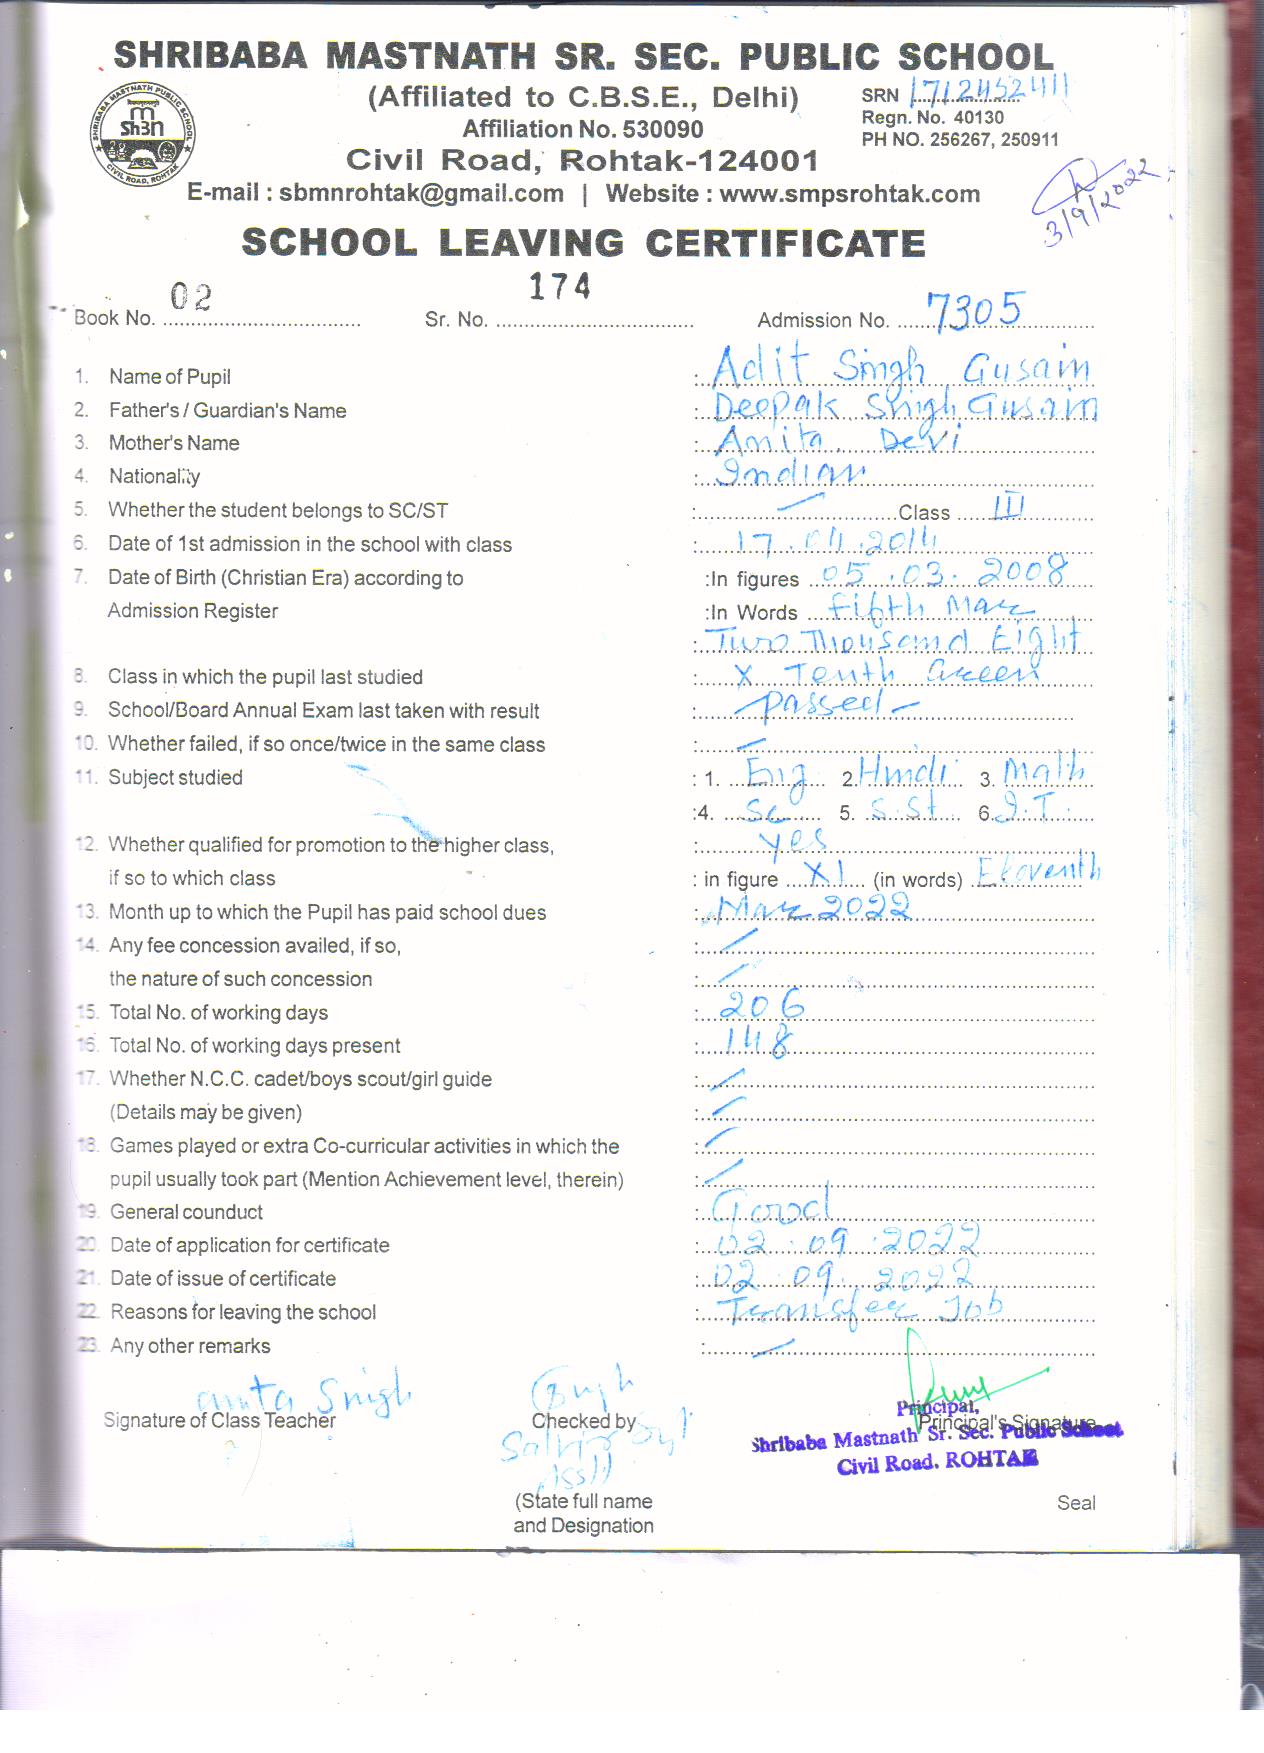 SHRIBABA MASTNATH SR. SEC. PUBLIC SCHOOL
(Affiliated to C.B.S.E., Delhi)
SRN 1712452411
Affiliation No. 530090
Regn. No. 40130
PH NO. 256267, 250911
Civil Road, Rohtak-124001
E-mail : sbmnrohtak@gmail.com | Website : www.smpsrohtak.com
3/9/2022
SCHOOL LEAVING CERTIFICATE
Book No. 02 Sr. No. 174 Admission No. 7305
1. Name of Pupil : Adit Singh Gusain
2. Father's / Guardian's Name : Deepak Singh Gusain
3. Mother's Name : Anita Devi
4. Nationality : Indian
5. Whether the student belongs to SC/ST : Class III
6. Date of 1st admission in the school with class : 17.04.2014
7. Date of Birth (Christian Era) according to :In figures 05.03.2008
Admission Register :In Words Fifth Mar
: Two Thousand Eight
8. Class in which the pupil last studied : X Tenth Green
9. School/Board Annual Exam last taken with result : Passed
10. Whether failed, if so once/twice in the same class :
11. Subject studied : 1. Eng 2. Hindi 3. Math
:4. Sc 5. S.St 6. I.T.
12. Whether qualified for promotion to the higher class, : yes
if so to which class : in figure XI (in words) Eleventh
13. Month up to which the Pupil has paid school dues : Mar 2022
14. Any fee concession availed, if so, :
the nature of such concession :
15. Total No. of working days : 206
16. Total No. of working days present : 148
17. Whether N.C.C. cadet/boys scout/girl guide :
(Details may be given) :
18. Games played or extra Co-curricular activities in which the :
pupil usually took part (Mention Achievement level, therein) :
19. General counduct : Good
20. Date of application for certificate : 02.09.2022
21. Date of issue of certificate : 02.09.2022
22. Reasons for leaving the school : Transfer Job
23. Any other remarks :
Anita Singh
Signature of Class Teacher Checked by Principal's Signature
Principal,
Shribaba Mastnath Sr. Sec. Public School
Civil Road, ROHTAK
(State full name Seal
and Designation